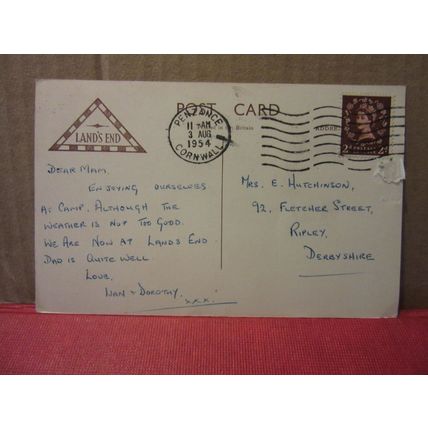 POST CARD
LAND'S END
PENZANCE
11 AM
3 AUG
1954
CORNWALL
ADDRESS
DEAR MAM,
ENJOYING OURSELVES
AT CAMP. ALTHOUGH THE
WEATHER IS NOT TOO GOOD.
WE ARE NOW AT LANDS END
DAD IS QUITE WELL.
LOVE,
DOROTHY.
x.x.x.
MRS. E. HUTCHINSON,
92, FLETCHER STREET,
RIPLEY,
DERBYSHIRE